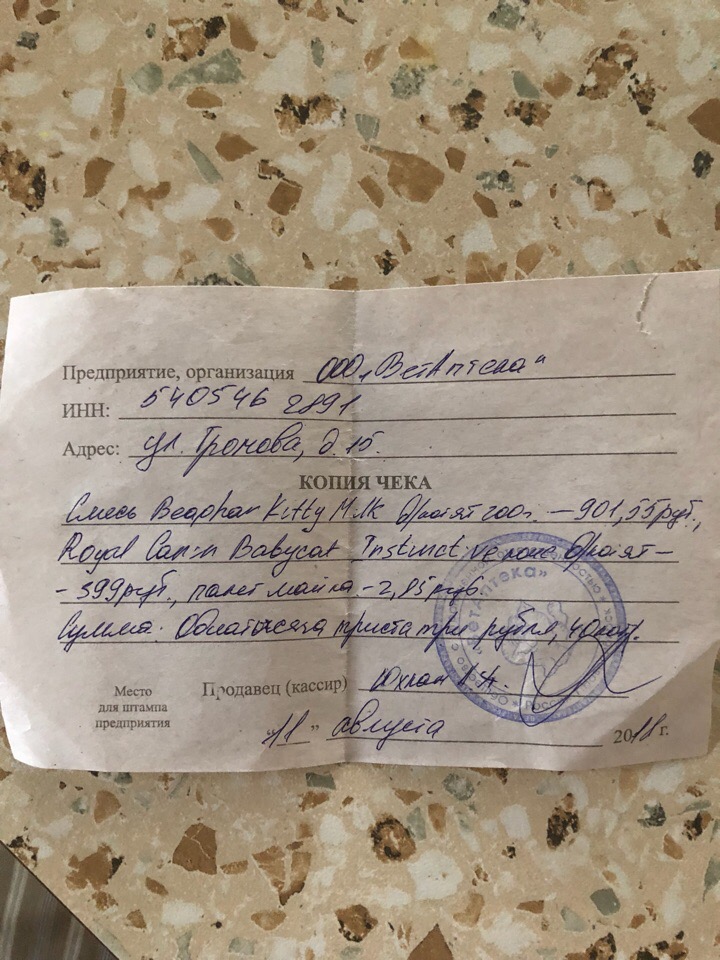 Предприятие, организация ООО „ВетАптека"
ИНН: 540546 2891
Адрес: ул. Громова, д. 15.
КОПИЯ ЧЕКА
Смесь Beaphar Kitty Milk д/котят 200г. – 901,55руб.,
Royal Canin Babycat Instinctive д/котят –
- 399руб., пакет майка - 2,85руб.
Сумма: Одна тысяча триста три рубля, 40коп.
Место
для штампа
предприятия
Продавец (кассир)
"11" августа 2018 г.
ветаптека»